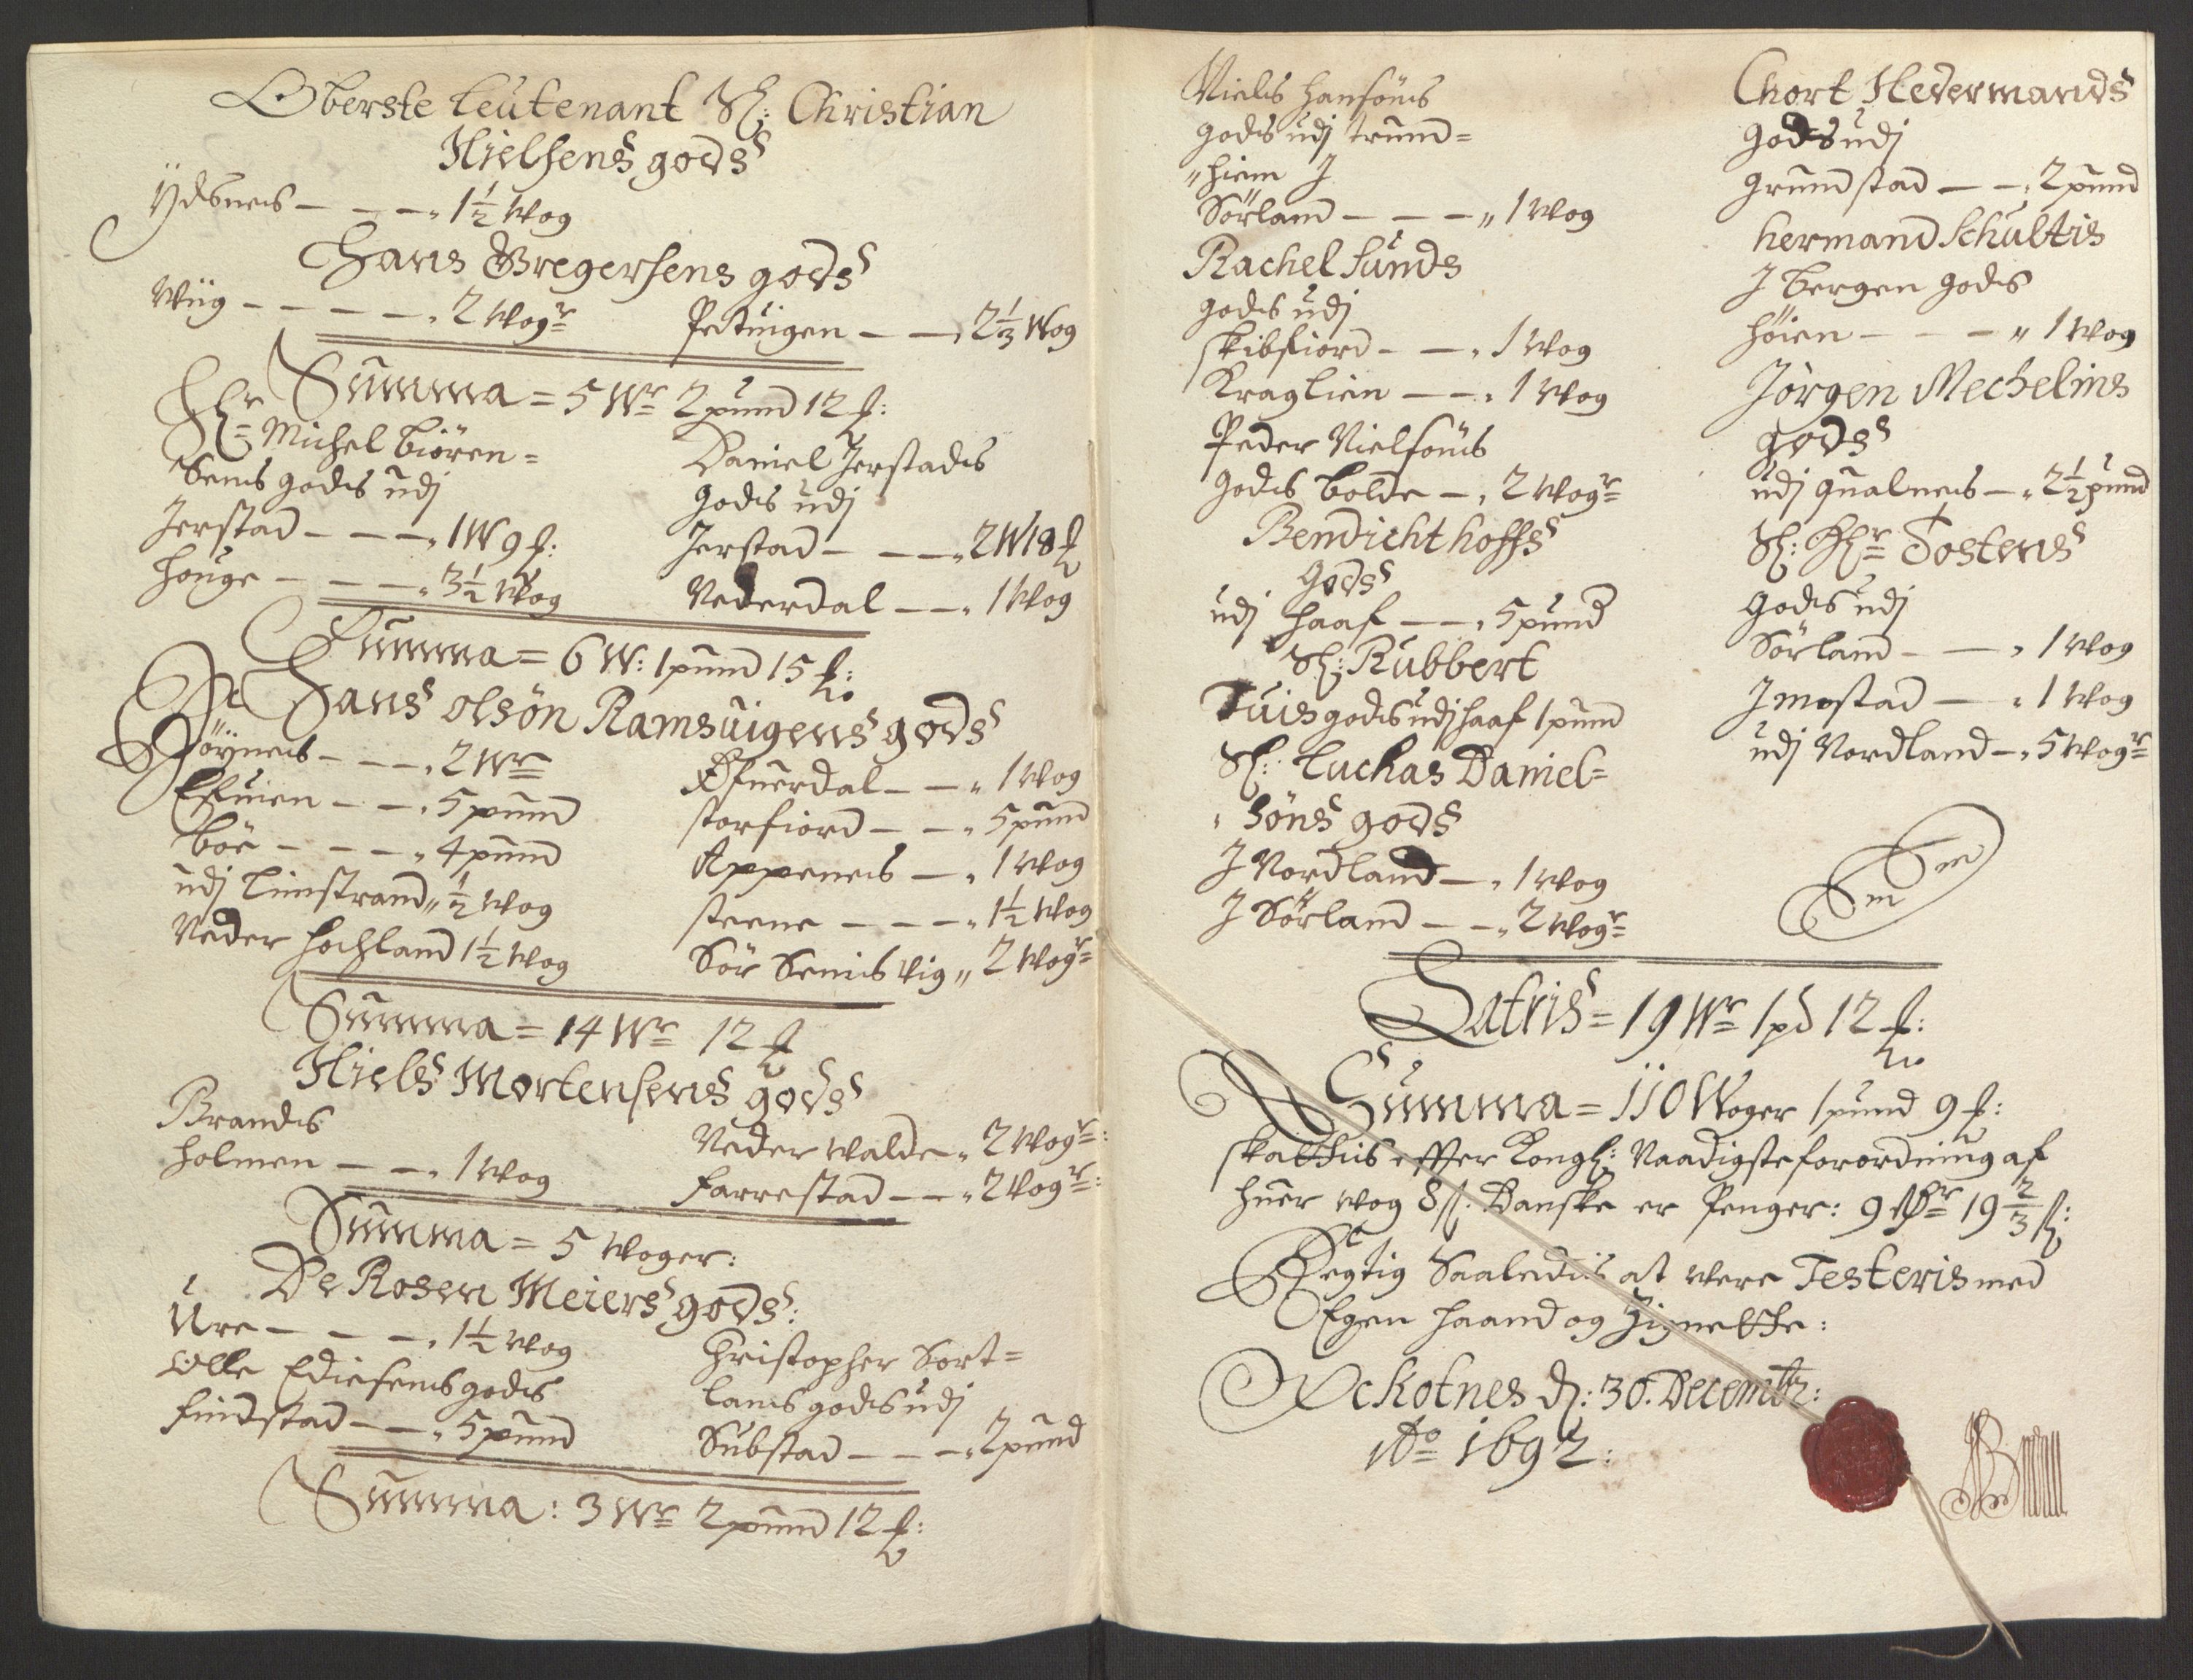 Oberste leutenant Sl: Christian
Nielsens gods
Ydsnes — — — „ 1 1/2 Wog
Hans Gregersens gods
Wiig — — — — „ 2 Wogr
Petuigen — — „ 2 1/3 Wog
Summa = 5 Wr 2 pund 12 ℔:
Hr Michel Biören=
Sens godes udj
Jerstad — — — „ 1 W 9 ℔:
Houge — — — „ 3 1/2 Wog
Daniel Jerstads
Godes udj
Jerstad — — — „ 2 W 18 ℔
Nederdal — — „ 1 Wog
Summa = 6 W: 1 pund 15 ℔:
Hans olsön Ramsuigens gods
Höynes — — — „ 2 Wr
Efuien — — „ 5 pund
Böe — — — „ 4 pund
udj Limstrand „ 1/2 Wog
Neder Hochland 1 1/2 Wog
Ofuerdal — — „ 1 Wog
storfiord — — „ 5 pund
Appenes — „ 1 Wog
steene — — — „ 1 1/2 Wog
Sör Senisvig „ 2 Wogr
Summa = 14 Wr 12 ℔
Niels Mortensens gods
Brandes
holmen — — „ 1 Wog
Neder walde „ 2 Wogr:
Farrestad — — „ 2 Wogr:
Summa = 5 Woger:
De Rosen Meiers gods:
Ure — — — „ 1 1/2 Wog
Olle Ediesens godes
Findstad — — „ 5 pund
Christopher Sort=
lams godes udj
Substad — — „ 2 pund
Summa: 3 Wr 2 pund 12 ℔:
Niels Hansöns
godes udj trund=
„hiem J
Sörland — — — „ 1 Wog
Rachel sunds
godes udj
skibfiord — — „ 1 Wog
Kraglien — — „ 1 Wog
Peder Nielsöns
Godes bolde — „ 2 Wogr
Bendicht hoffs
Gods
udj Haaf — — „ 5 pund
Sl: Rubbert
Tuis godes udj Haaf 1 pund
Sl: Luchas Daniel=
„ Söns gods
J Nordland — „ 1 Wog
J Sörland — — „ 2 Wogr
Chort Medermands
Godes udj
Grundstad — — „ 2 pund
hermand Schultis
J bergen godes
höien — — — „ 1 Wog
Jörgen Mechelins
gods
udj qualnes — „ 2 1/2 pund
Sl: Hr Tostens
Godes udj
Sörland — — „ 1 Wog
Jmostad — — „ 1 Wog
udj Nordland — „ 5 Wogr
Latris = 19 Wr 1 pd 12 ℔:
Summa = 110 Woger 1 pund 9 ℔:
skattis effter Kongl: Naadigste forordning af
huer wog 8 sl. Danske er Penger: 9 Rdr 19 2/3 sl:
Regtig Saaledis at were Testeris med
Egen Haand og Zignette:
Ockotnes Dl: 30. Decembr:
Ao 1692: